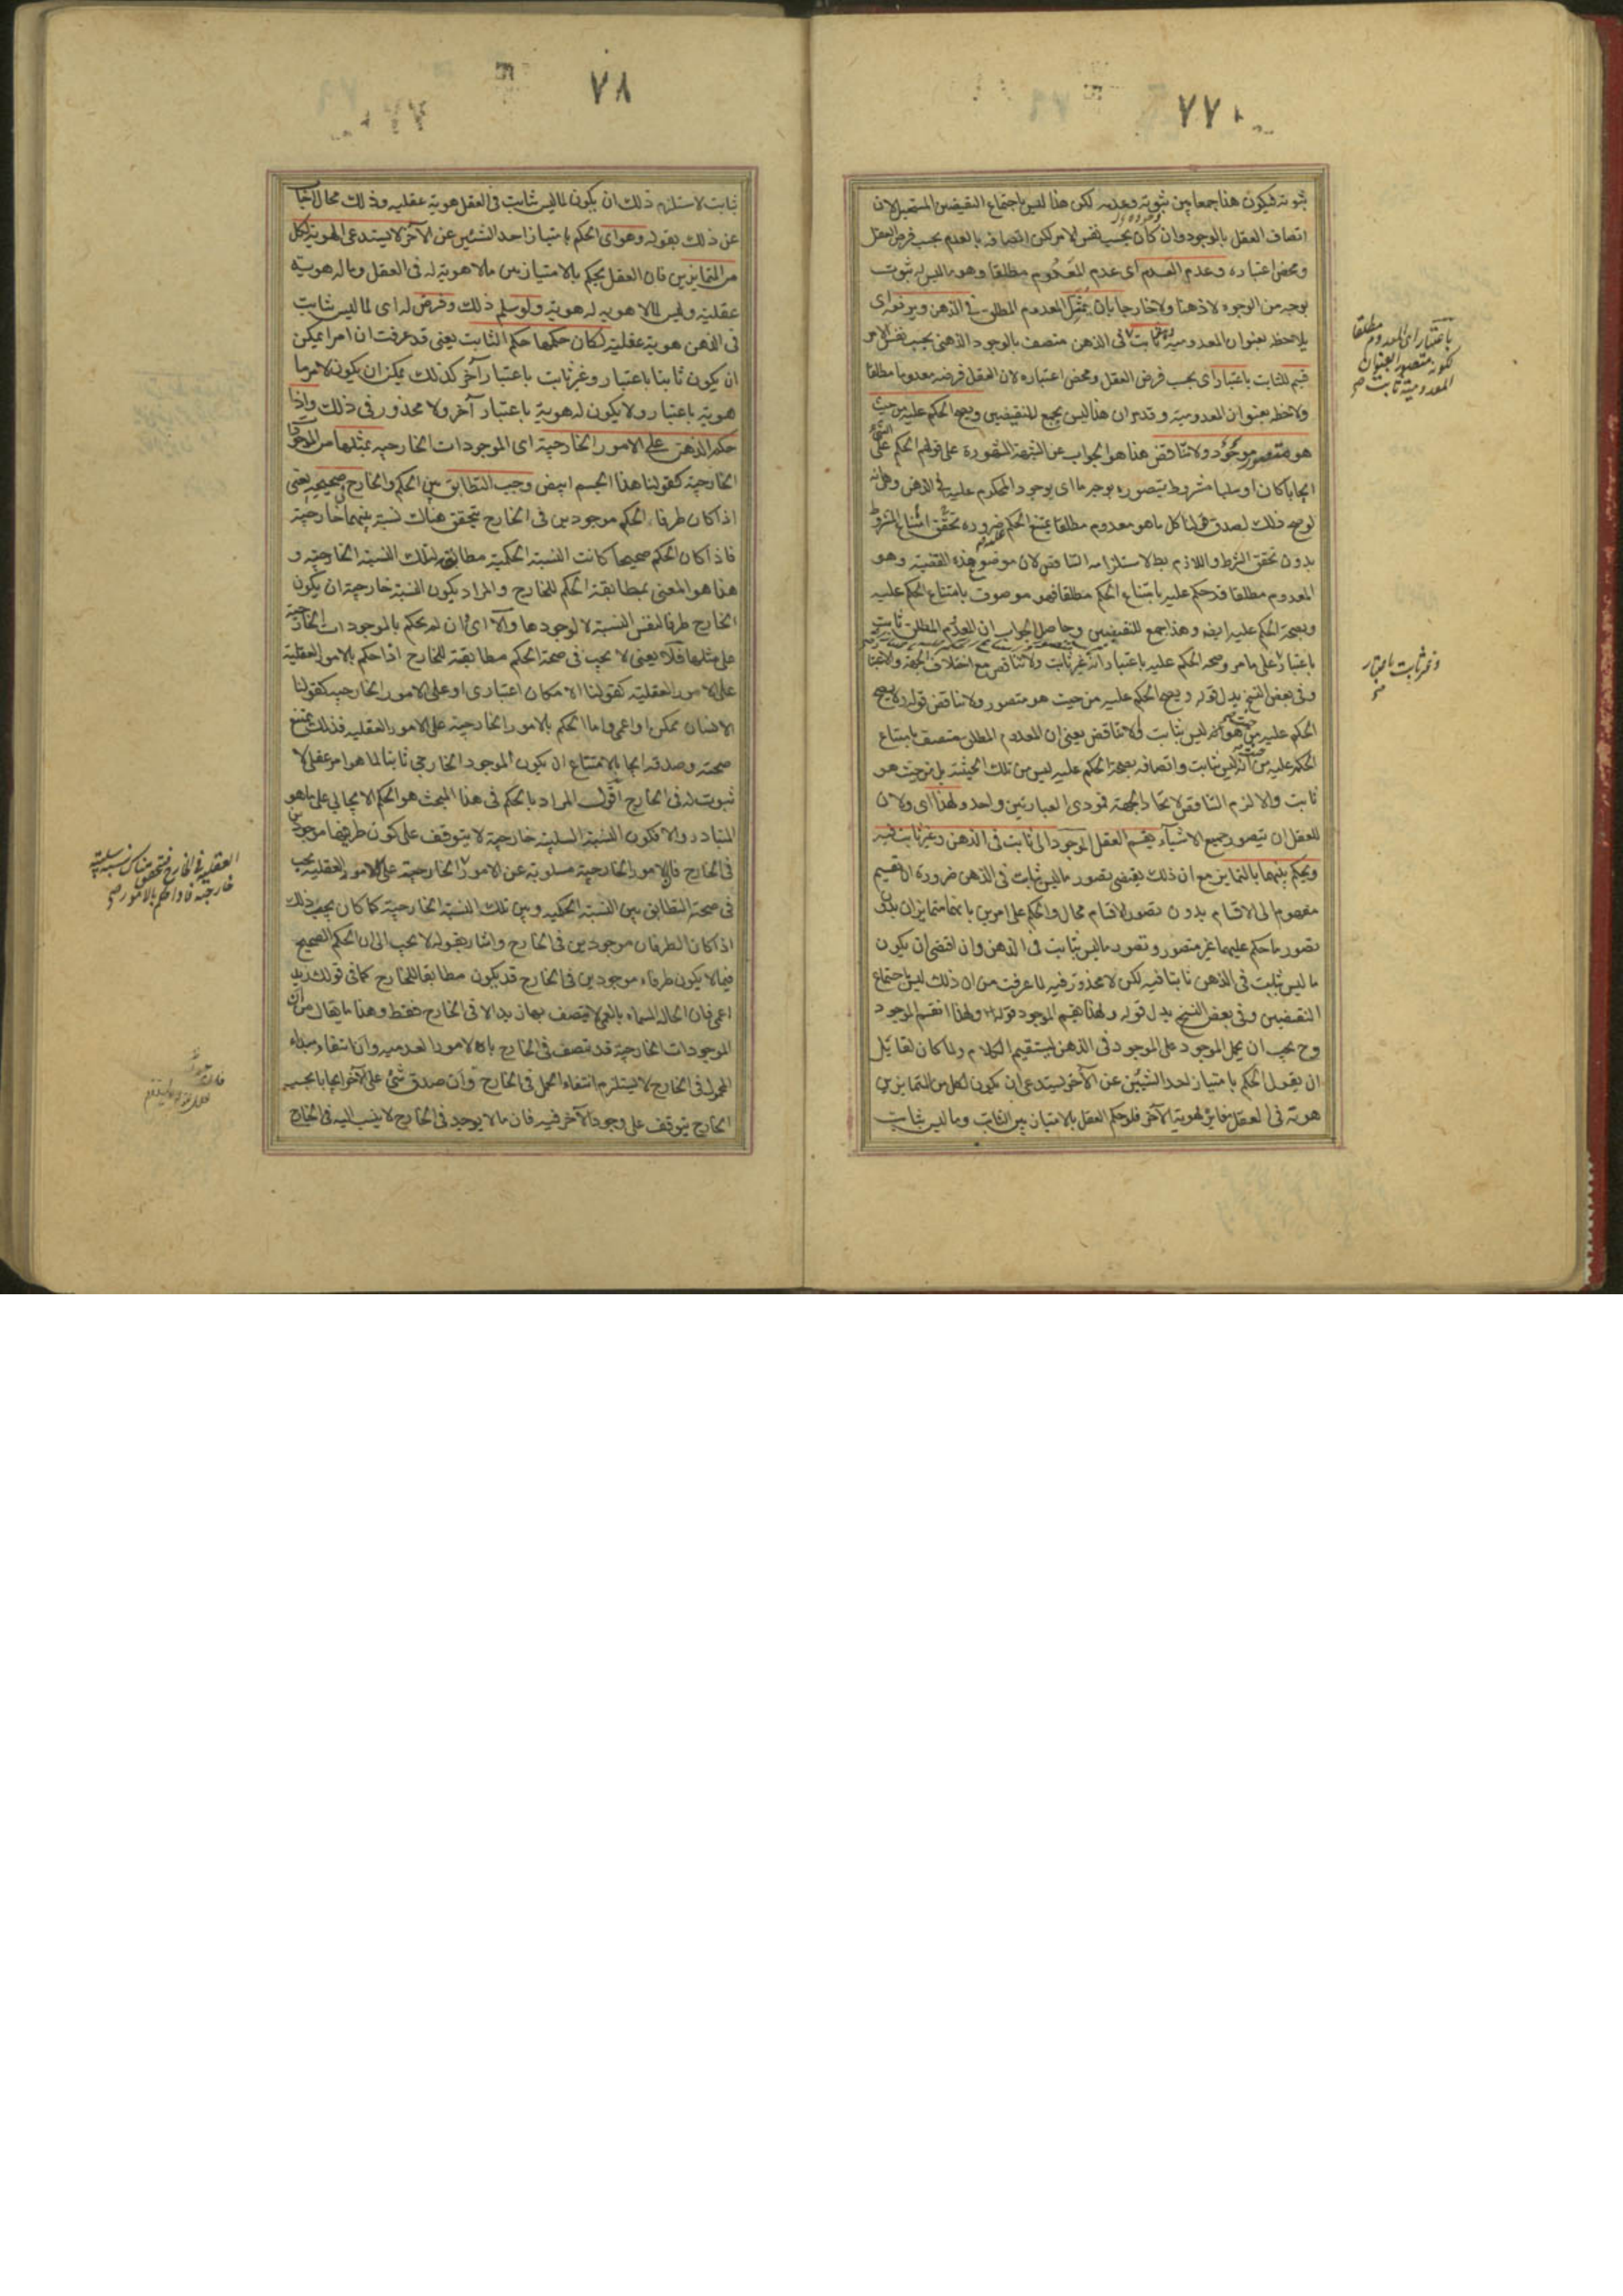 ٧٧
ثبوته فيكون هذا جمعا بين ثبوته وعدمه لكن هذا ليس باجتماع النقيضين المستحيل لان
اتصاف العقل بالوجود وان كان بحسب نفس الامر لكن اتصافه بالعدم بحسب فرض العقل
ومحض اعتباره وعدم العدم اى عدم المعدوم مطلقا وهو ما ليس له ثبوت
بوجه من الوجوه لا ذهنا ولا خارجا بان يتمثل المعدوم المطلق فى الذهن ويرفعه اى
يلاحظه بعنوان المعدومية ثابت فى الذهن متصف بالوجود الذهنى بحسب نفس الامر
قسيم للثابت باعتبار اى بحسب فرض العقل ومحض اعتباره لان العقل فرضه معدوما مطلقا
ولاحظه بعنوان المعدومية وقد مر ان هذا ليس بجمع للنقيضين ويصح الحكم عليه من حيث
هو متصور موجود ولا تناقض هذا هو الجواب عن الشبهة المشهورة على قولهم الحكم على الشئ
ايجابا كان او سلبا مشروط بتصوره بوجه ما اى بوجود المحكوم عليه فى الذهن وهى انه
لو صح ذلك لصدق قولنا كل ما هو معدوم مطلقا يمتنع الحكم عليه ضرورة تحقق امتناع المشروط
بدون تحقق الشرط واللازم بط لاستلزامه التناقض لان موضوع هذه القضية وهو
المعدوم مطلقا قد حكم عليه بامتناع الحكم مطلقا فهو موصوف بامتناع الحكم عليه
وبصحة الحكم عليه ايضا وهذا جمع للنقيضين وحاصل الجواب ان المعدوم المطلق ثابت
باعتبار على ما مر وصحة الحكم عليه باعتبار انه غير ثابت ولا تناقض مع اختلاف الجهة والاعتبار
وفى بعض النسخ بدل قوله ويصح الحكم عليه من حيث هو متصور ولا تناقض قوله ولا يصح
الحكم عليه من حيث هو انه ليس بثابت ولا تناقض يعنى ان المعدوم المطلق متصف بامتناع
الحكم عليه من حيث انه ليس بثابت واتصافه بصحة الحكم عليه ليس من تلك الحيثية بل من حيث هو
ثابت والا لزم التناقض لاتحاد الجهة فمودى العبارتين واحد ولهذا اى ولان
للعقل ان يتصور جميع الاشياء يقسم العقل الموجود الى ثابت فى الذهن وغير ثابت فيه
ويحكم بينهما بالتمايز مع ان ذلك يقتضى تصور ما ليس بثابت فى الذهن ضرورة ان تقسيم
مفهوم الى الاقسام بدون تصور الاقسام محال والحكم على امرين بانهما متمايزان بدون
تصور ما حكم عليهما غير متصور وتصور ما ليس بثابت فى الذهن وان اقتضى ان يكون
ما ليس بثابت فى الذهن ثابتا فيه لكن لا محذور فيه لما عرفت من ان ذلك ليس باجتماع
النقيضين وفى بعض النسخ بدل قوله ولهذا يقسم الموجود قوله ولهذا انقسم الموجود
وح يجب ان يحمل الموجود على الموجود فى الذهن ليستقيم الكلام ولما كان لقائل
ان يقول الحكم بامتياز احد الشيئين عن الآخر يستدعى ان يكون لكل من المتمايزين
هوية فى العقل مغايرة لهوية الآخر فلو حكم العقل بالامتياز بين الثابت وما ليس بثابت
باعتبار اى المعدوم مطلقا
لكونه متصورا بعنوان
المعدومية ثابت صح
وغير ثابت باعتبار
صح
٧٨
ثابت لاستلزم ذلك ان يكون لما ليس ثابت فى العقل هوية عقلية وذلك محال اجاب
عن ذلك بقوله وهو اى الحكم بامتياز احد الشيئين عن الآخر لا يستدعى الهوية لكل
من المتمايزين فان العقل يحكم بالامتياز بين ما لا هوية له فى العقل وما له هوية
عقلية وليس لما لا هوية له هوية ولو سلم ذلك وفرض له اى لما ليس بثابت
فى الذهن هوية عقلية لكان حكمها حكم الثابت يعنى قد عرفت ان امرا يمكن
ان يكون ثابتا باعتبار وغير ثابت باعتبار آخر كذلك يمكن ان يكون لامر ما
هوية باعتبار ولا يكون له هوية باعتبار آخر ولا محذور فى ذلك واذا
حكم الذهن على الامور الخارجية اى الموجودات الخارجية بمثلها من الموجودات
الخارجية كقولنا هذا الجسم ابيض وجب التطابق بين الحكم والخارج فى صحيحه يعنى
اذا كان طرفاء الحكم موجودين فى الخارج يتحقق هناك نسبة بينهما خارجية
فاذا كان الحكم صحيحا كانت النسبة الحكمية مطابقة لتلك النسبة الخارجية و
هذا هو المعنى بمطابقة الحكم للخارج والمراد بكون النسبة خارجية ان يكون
الخارج ظرفا لنفس النسبة لا لوجودها والا اى وان لم يحكم بالموجودات الخارجية
على مثلها فلا يعنى لا يجب فى صحة الحكم مطابقة للخارج اذا حكم بالامور العقلية
على الامور العقلية كقولنا الامكان اعتبارى او على الامور الخارجية كقولنا
الانسان ممكن او اعمى واما الحكم بالامور الخارجية على الامور العقلية فذلك يمتنع
صحته وصدقه ايجابا لامتناع ان يكون الموجود الخارجى ثابتا لما هو امر عقلى لا
ثبوت له فى الخارج اقول المراد بالحكم فى هذا المبحث هو الحكم الايجابى على ما هو
المتبادر والا فكون النسبة السلبية خارجية لا يتوقف على كون طرفيها موجودين
فى الخارج فان الامور الخارجية مسلوبة عن الامور الخارجية على الامور العقلية يجب
فى صحته التطابق بين النسبة الحكمية وبين تلك النسبة الخارجية كما كان يجب ذلك
اذا كان الطرفان موجودين فى الخارج واشار بقوله لا يجب الى ان الحكم الصحيح
فيما لا يكون طرفاه موجودين فى الخارج قد يكون مطابقا للخارج كما فى قولك زيد
اعمى فان الحالة المسماة بالعمى لا يتصف بها زيد الا فى الخارج فقط وهذا ما يقال من ان
الموجودات الخارجية قد تتصف فى الخارج بالامور العدمية وان انتفاء مبداء
المحمول فى الخارج لا يستلزم انتفاء الحمل فى الخارج وان صدق شئ على الآخر ايجابا بحسب
الخارج يتوقف على وجود الآخر فيه فان ما لا يوجد فى الخارج لا ينسب اليه فى الخارج
العقلية فى الخارج فتحقق هناك نسبة سلبية
خارجية فاذا حكم بالامور صح